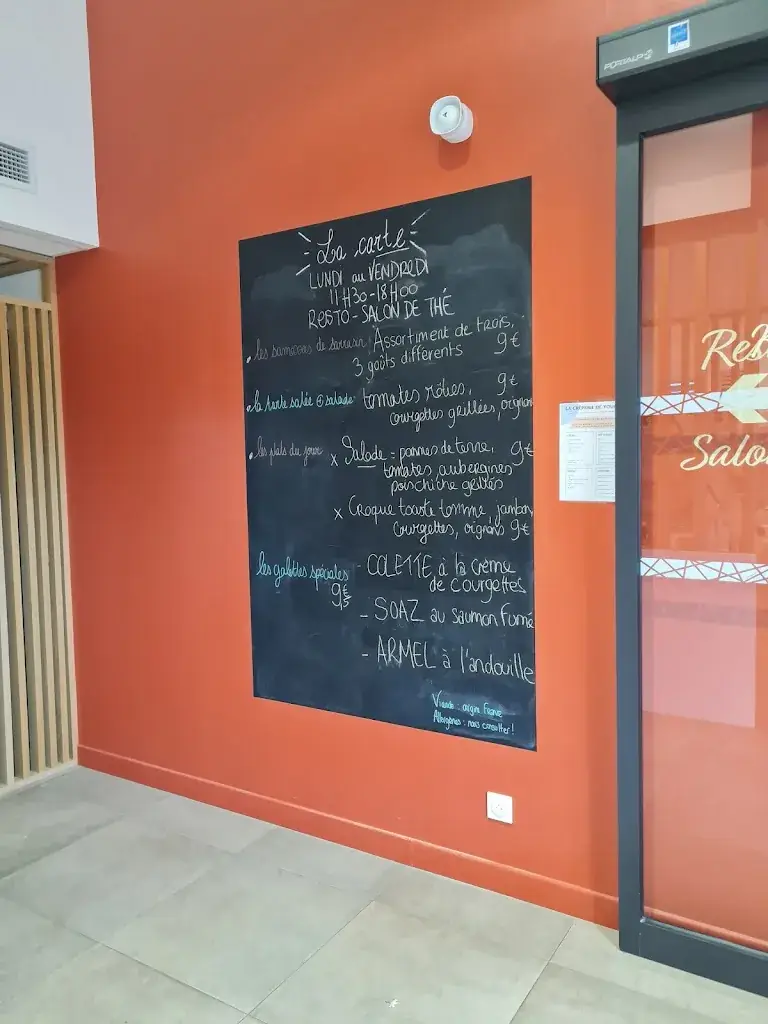 La carte
LUNDI au VENDREDI
11H30-18H00
RESTO - SALON DE THÉ
• les samosas de sarrasin Assortiment de trois,
3 goûts différents 9€
• la tarte salée ⊕ salade: tomates rôties, 9€
courgettes grillées, oignons
• les plats du jour x Salade = pommes de terre, 9€
tomates, aubergines
pois chiche
x Croque toasté tomme, jambon,
courgettes, oignons 9€
les galettes spéciales - COLETTE à la crème
9€5 de courgettes
- SOAZ au saumon fumé
- ARMEL à l'andouille
Viande: origine France
Allergènes: nous consulter!
PORTALP
LA CRÊPERIE DE
Salo